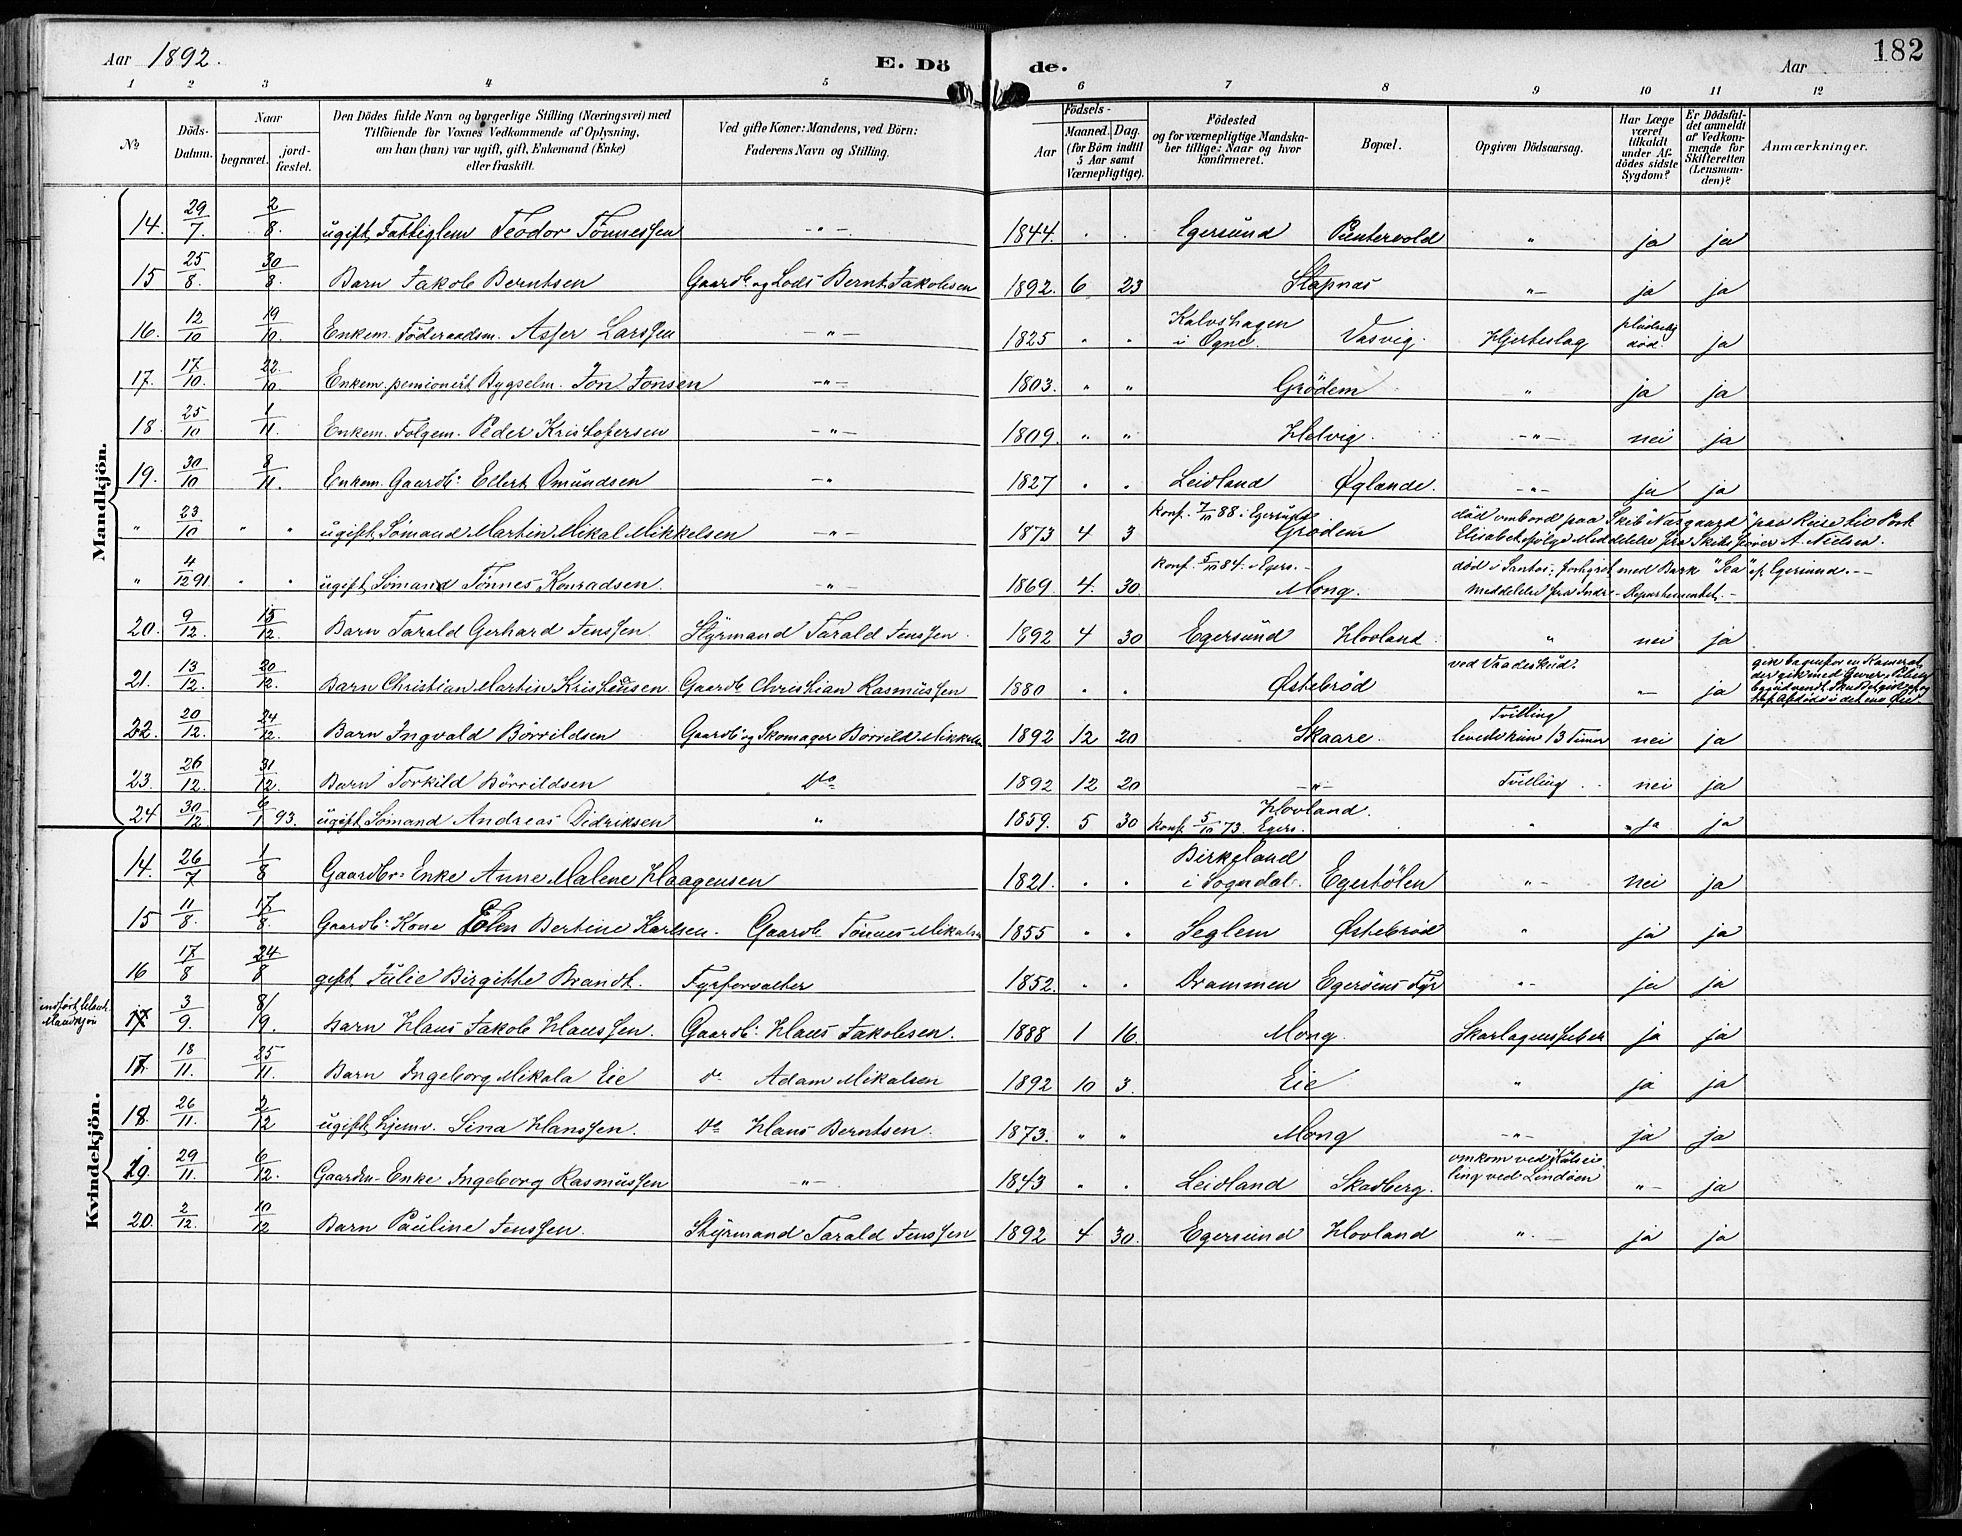 Aar 1892. E. Dö de. Aar 182
1 2 3 4 5 6 7 8 9 10 11 12
No
Döds-Datum.
Naar
begravet. jord-fæstet.
Den Dödes fulde Navn og borgerlige Stilling (Næringsvei) med
Tilföiende for Voxnes Vedkommende af Oplysning,
om han (hun) var ugift, gift, Enkemand (Enke)
eller fraskilt.
Ved gifte Koner: Mandens, ved Börn:
Faderens Navn og Stilling.
Födsels-
Aar
Maaned. Dag.
(for Börn indtil
5 Aar samt
Værnepligtige).
Födested
og for værnepligtige Mandska-
ber tillige: Naar og hvor
konfirmeret.
Bopæl.
Opgiven Dödsaarsag.
Har Læge
været
tilkaldt
under Af-
dödes sidste
Sygdom?
Er Dödsfal-
det anmeldt
af Vedkom-
mende for
Skifteretten
(Lensman-
den)?
Anmærkninger.
Mandkjön.
14. 29/7 2/8. ugift, Fattiglem Teodor Tönnessen - " - 1844. " " Egersund Puntervold " ja ja
15 25/8. 30/8. Barn Jakob Berntsen Gaardb. og Lods Bernt Jakobsen 1892. 6 23 Stapnæs - " - ja ja
16. 12/10 19/10. Enkem. Föderaadsm. Asser Larssen - " - 1825 " " Kalvshagen
i Ogne. Vasvig. Hjerteslag pludselig
död. ja
17. 17/10. 22/10 Enkem. pensionert Bygselm. Jon Jonsen - " - 1803. " " Grödem " ja ja
18. 25/10 1/11. Enkem. Folgem. Peder Kristofersen - " - 1809. " " Helvig. - " - nei ja
19. 30/10 8/11. Enkem. Gaardb. Ellert Omundsen - " 1827 " " Leidland Øglende. - " - ja ja
" 23/10 " " ugift, Sömand Martin Mikal Mikkelsen - " - 1873 4 3 konf. 7/10 88 i Egersund
Grödem död ombord paa Skib "Næsgaard" paa Reise til Port
Elisabet ifölge Meddelelse fra Skibsförer A. Nielsen.
" 4/12 91 " " ugift, Sömand Tönnes Konradsen. - " - 1869. 4. 30 konf. 5/10 84. i Egers. -
Mong. död i Santos; forhyret med Bark "Sea" af Egersund. -
Meddelelse fra Indre - Departementet. -
20. 9/12. 15/12. Barn Tarald Gerhard Jenssen. Styrmand Tarald Jenssen. 1892 4 30 Egersund Hovland " nei ja
21. 13/12. 20/12. Barn Christian Martin Kristensen Gaardb. Christian Rasmussen 1880 " " Østebröd ved Vaadeskud. - " - ja
22. 20/12. 24/12. Barn Ingvald Börrildsen Gaardb. og Skomager Börrild Mikkelsen 1892 12 20 Skaare. Tvilling
levede kun 13 Timer nei ja
23. 26/12. 31/12. Barn Torkild Börrildsen Do 1892 12 20 - " - Tvilling nei ja
24 30/12. 6/1 93. ugift, Sömand Andreas Didriksen " 1859. 5 30 Hovland.
konf. 5/10 73. Egers. " ja ja
Kvindekjön.
14. 26/7 1/8 Gaardbr. Enke Anne Malene Haagensen 1821. " " Birkeland
i Sogndal. Egestölen " - nei ja
15 11/8. 17/8. Gaardb. Kone Elen Bertine Karlsen. Gaardb. Tönnes Mikalsen 1855 " " Seglem Østebröd " ja ja
16 17/8 24/8 gift, Julie Birgitte Brandt. Fyrforvalter 1852. " " Drammen Egeröens Fyr " - ja ja
17 3/9. 8/9. Barn Hans Jakob Hanssen. Gaardb. Hans Jakobsen. 1888 1 16 Mong. Skarlagensfeber ja ja
17. 18/11. 25/11. Barn Ingeborg Mikala Eie do Adam Mikalsen 1892 10 3. Eie " ja ja
18. 26/11. 2/12 ugift, hjemv. Sina Hanssen. Do Hans Berntsen. 1873. " " Mong - " - ja ja
19. 29/11. 6/12. Gaardm. Enke Ingeborg Rasmussen - " - 1843 " " Leidland Skadberg. omkom ved Kulsei-
ling ved Lindöen - " - ja
20. 2/12. 10/12 Barn Pauline Jenssen. Styrmand Tarald Jenssen 1892 4 30. Egersund Hovland " - ja ja